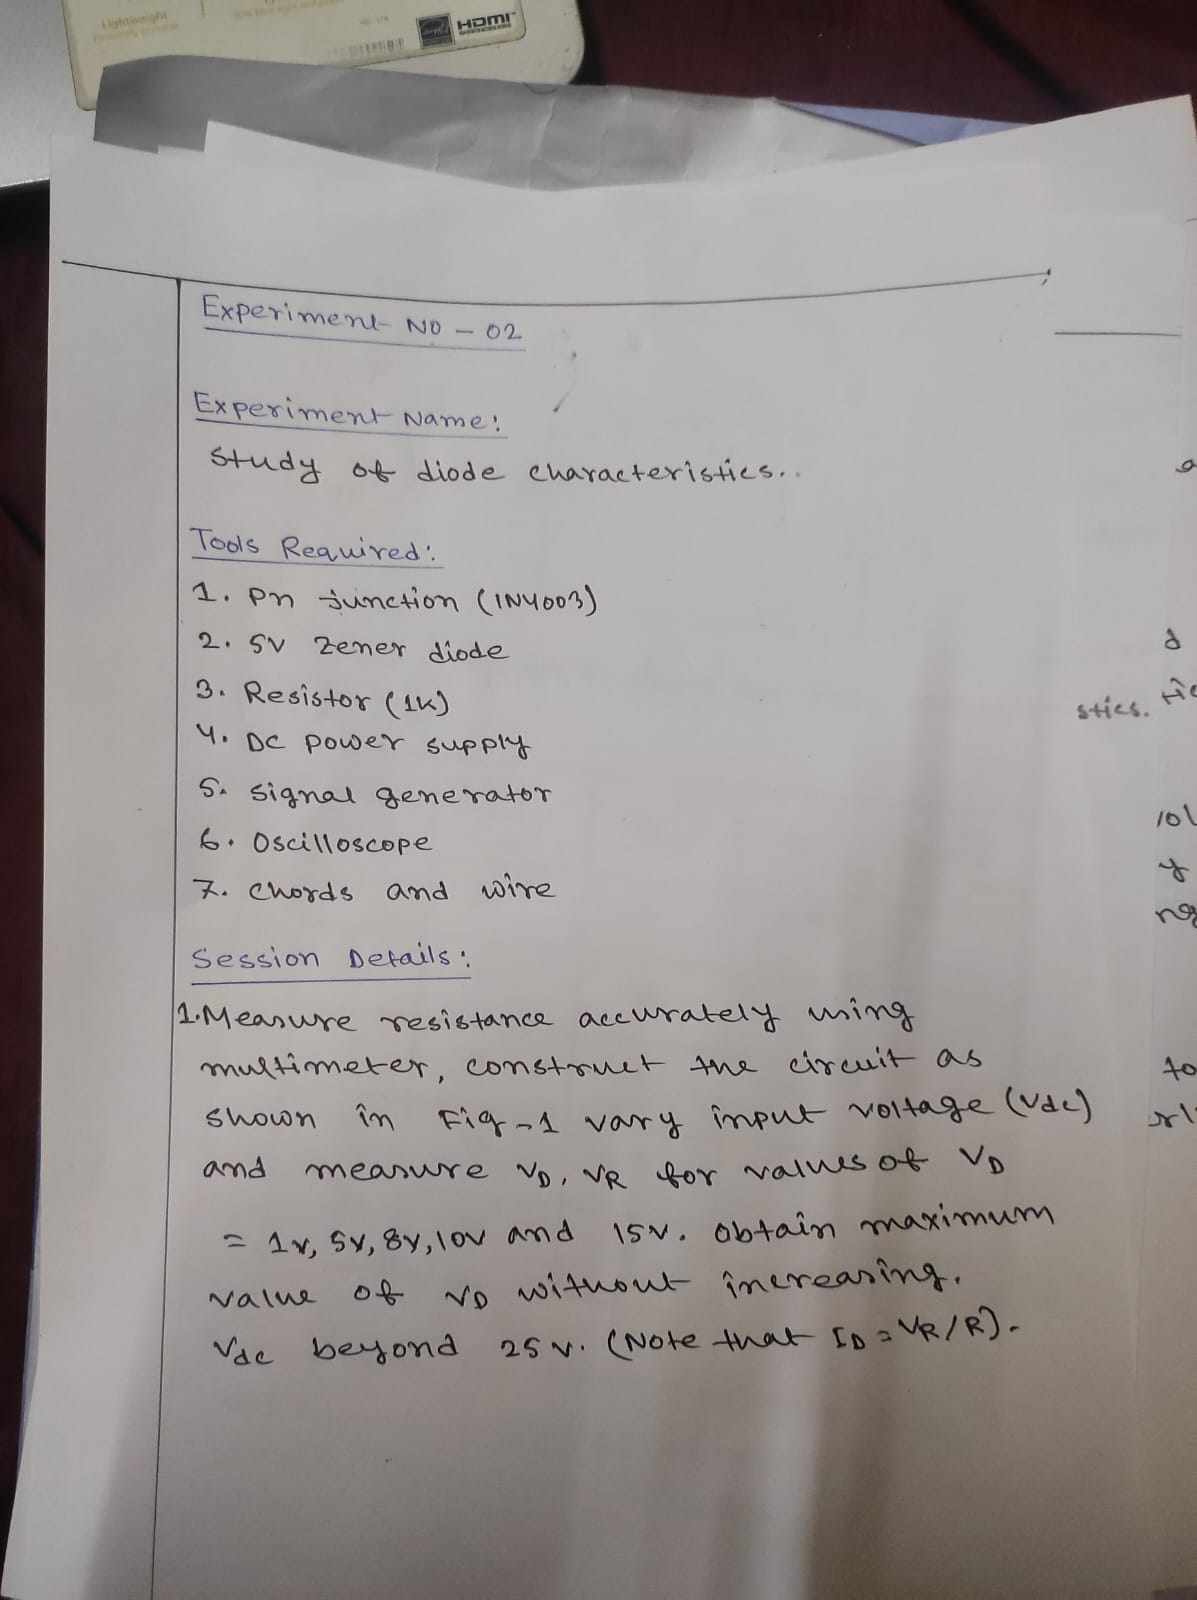 HDMI
Experiment NO - 02
Experiment Name:
Study of diode characteristics..
Tools Required:
1. Pn junction (1N4003)
2. 5V Zener diode
3. Resistor (1K)
4. DC power supply
5. Signal generator
6. Oscilloscope
7. Chords and wire
Session Details:
1. Measure resistance accurately using
multimeter, construct the circuit as
shown in Fig-1 vary input voltage (Vdc)
and measure VD, VR for values of VD
= 1V, 5V, 8V, 10V and 15V. Obtain maximum
value of VD without increasing.
Vdc beyond 25V. (Note that ID = VR/R).
stics.